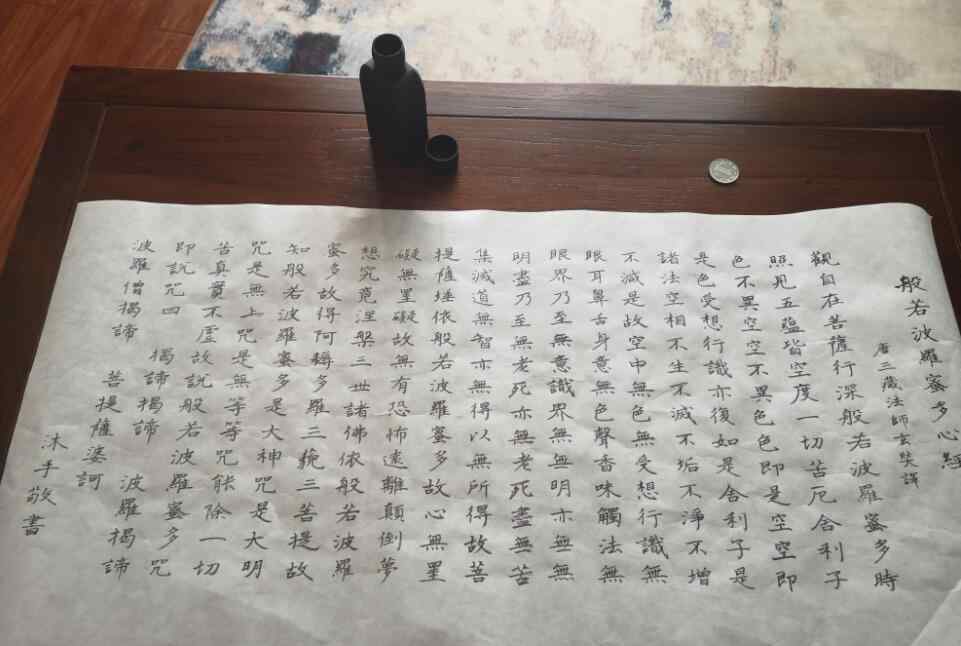 般若波羅蜜多心經
唐三藏法師玄奘譯
觀自在菩薩行深般若波羅蜜多時
照見五蘊皆空度一切苦厄舍利子
色不異空空不異色色即是空空即
是色受想行識亦復如是舍利子是
諸法空相不生不滅不垢不淨不增
不滅是故空中無色無受想行識無
眼耳鼻舌身意無色聲香味觸法無
眼界乃至無意識界無無明亦無無
明盡乃至無老死亦無老死盡無苦
集滅道無智亦無得以無所得故菩
提薩埵依般若波羅蜜多故心無罣
礙無罣礙故無有恐怖遠離顛倒夢
想究竟涅槃三世諸佛依般若波羅
蜜多故得阿耨多羅三藐三菩提故
知般若波羅蜜多是大神咒是大明
咒是無上咒是無等等咒能除一切
苦真實不虛故說般若波羅蜜多咒
即說咒曰 揭諦揭諦 波羅揭諦
波羅僧揭諦 菩提薩婆訶
沐手敬書